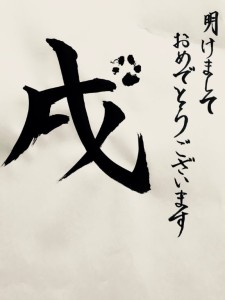 明けまして
おめでとうございます
戌